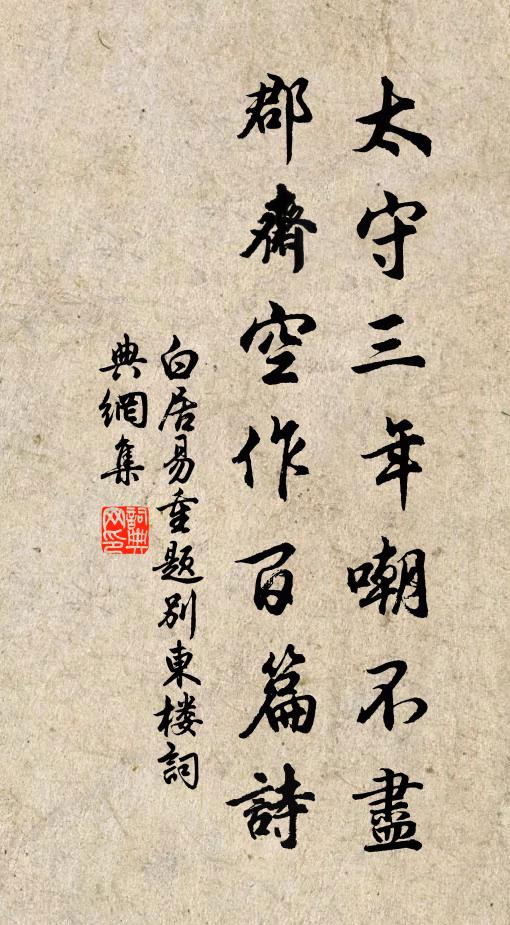 太守三年嘲不盡
郡齋空作百篇詩
白居易重題別東楼詞
典網集
詞典网印